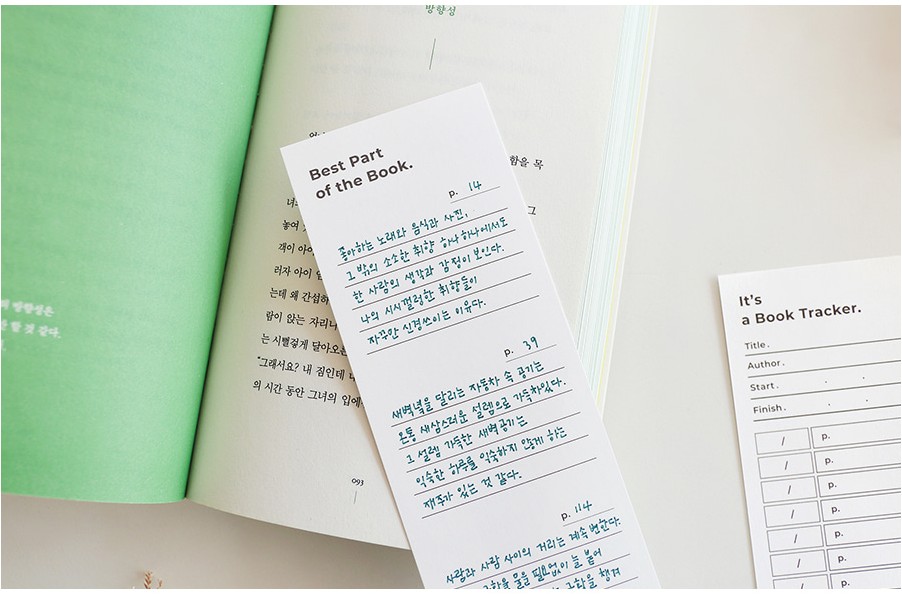 방향성
함을 목
그
녀
놓여
객이 아이
러자 아이
는데 왜 간섭하
람이 앉는 자리니
는 시뻘겋게 달아오른
"그래서요? 내 짐인데
의 시간 동안 그녀의 입에
093
방향성은
할 것 같다.
Best Part
of the Book.
p. 14
좋아하는 노래와 음식과 사진,
그 밖의 소소한 취향 하나하나에서도
한 사람의 생각과 감정이 보인다.
나의 시시껄렁한 취향들이
자꾸만 신경쓰이는 이유다.
p. 39
새벽녘을 달리는 자동차 속 공기는
온통 새삼스러운 설렘으로 가득차있다.
그 설렘 가득한 새벽공기는
익숙한 하루를 익숙하지 않게 하는
재주가 있는 것 같다.
p. 114
사람과 사람 사이의 거리는 계속 변한다.
물을 필요없이 늘 붙어
챙겨
It's
a Book Tracker.
Title.
Author.
Start. . .
Finish. . .
/ p.
/ p.
/ p.
/ p.
/ p.
/ p.
/ p.